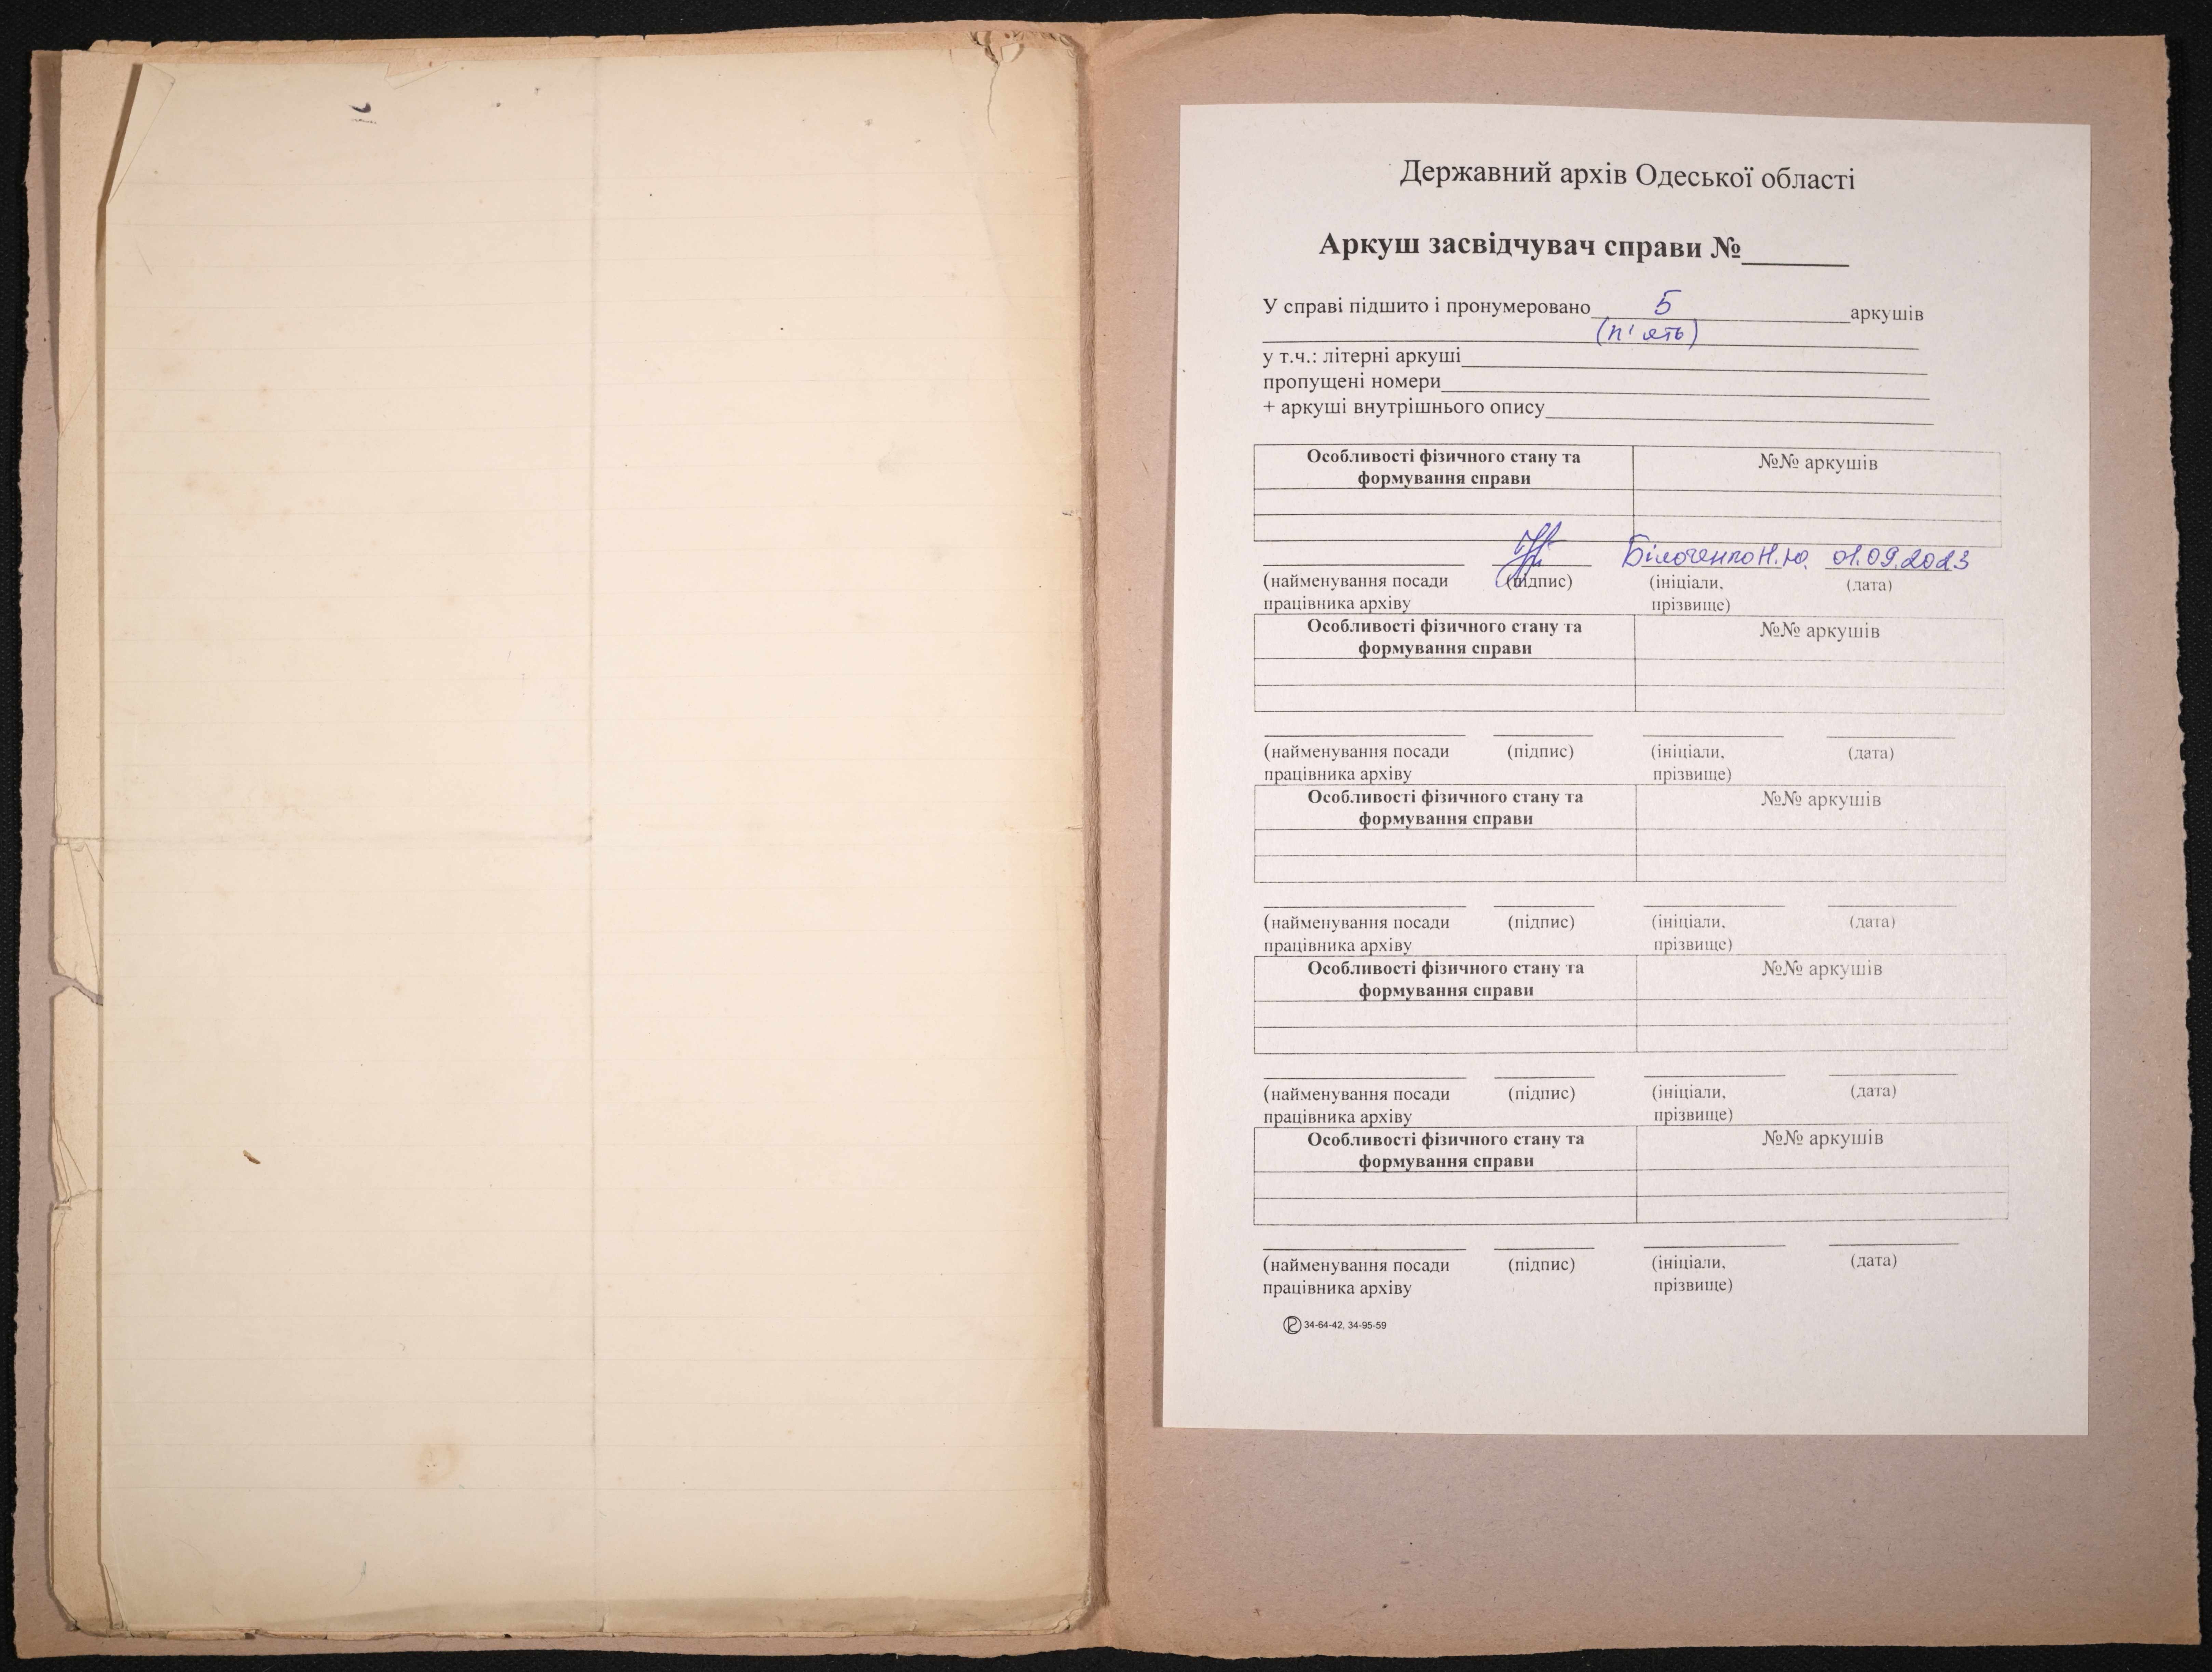 Державний архів Одеської області
Аркуш засвідчувач справи №
У справі підшито і пронумеровано 5 аркушів
(п'ять)
у т.ч.: літерні аркуші
пропущені номери
+ аркуші внутрішнього опису
Особливості фізичного стану та формування справи №№ аркушів
Н.Ю. 01.09.2023
(найменування посади працівника архіву (підпис) (ініціали, прізвище) (дата)
Особливості фізичного стану та формування справи №№ аркушів
(найменування посади працівника архіву (підпис) (ініціали, прізвище) (дата)
Особливості фізичного стану та формування справи №№ аркушів
(найменування посади працівника архіву (підпис) (ініціали, прізвище) (дата)
Особливості фізичного стану та формування справи №№ аркушів
(найменування посади працівника архіву (підпис) (ініціали, прізвище) (дата)
Особливості фізичного стану та формування справи №№ аркушів
(найменування посади працівника архіву (підпис) (ініціали, прізвище) (дата)
34-64-42, 34-95-59